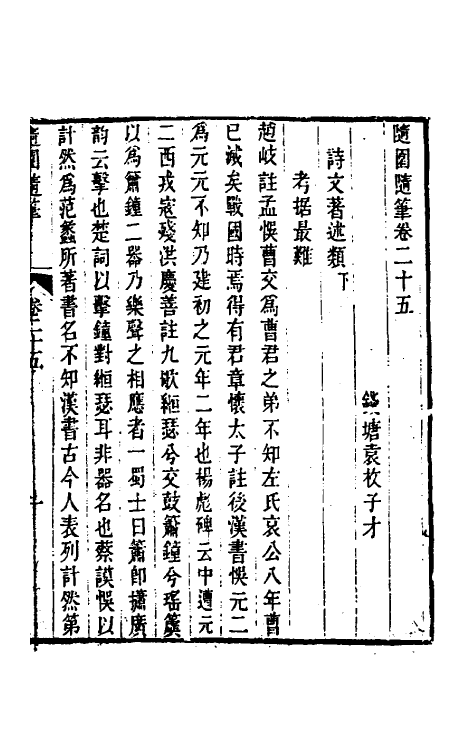 隨園隨筆卷二十五
錢塘袁枚子才
詩文著述類下
考据最難
趙岐註孟悞曹交為曹君之弟不知左氏哀公八年曹
已滅矣戰國時焉得有君章懷太子註後漢書悞元二
為元元不知乃建初之元年二年也楊彪碑云中遭元
二西戎寇殘洪慶善註九歌緪瑟兮交鼓簫鐘兮瑤簴
以為簫鐘二器乃樂聲之相應者一蜀士曰簫卽㩋廣
韵云擊也楚詞以擊鐘對緪瑟耳非器名也蔡謨悞以
計然為范蠡所著書名不知漢書古今人表列計然第
隨園隨筆
卷二十五